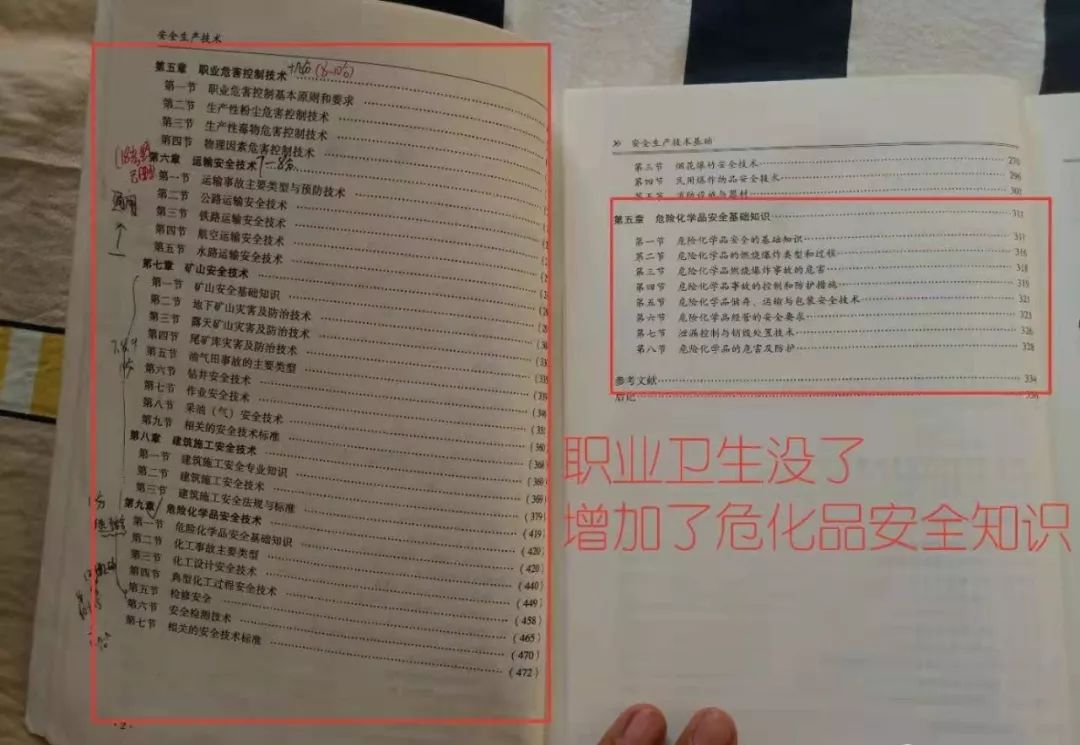 安全生产技术
第五章 职业危害控制技术
第一节 职业危害控制基本原则和要求
第二节 生产性粉尘危害控制技术
第三节 生产性毒物危害控制技术
第四节 物理因素危害控制技术
第六章 运输安全技术
第一节 运输事故主要类型与预防技术
第二节 公路运输安全技术
第三节 铁路运输安全技术
第四节 航空运输安全技术
第五节 水路运输安全技术
第七章 矿山安全技术
第一节 矿山安全基础知识
第二节 地下矿山灾害及防治技术
第三节 露天矿山灾害及防治技术
第四节 尾矿库灾害及防治技术
第五节 油气田事故的主要类型
第六节 钻井安全技术
第七节 作业安全技术
第八节 采油(气)安全技术
第九节 相关的安全技术标准
第八章 建筑施工安全技术
第一节 建筑施工安全专业知识
第二节 建筑施工安全技术
第三节 建筑施工安全法规与标准
第九章 危险化学品安全技术
第一节 危险化学品安全基础知识
第二节 化工事故主要类型
第三节 化工设计安全技术
第四节 典型化工过程安全技术
第五节 检修安全
第六节 安全检测技术
第七节 相关的安全技术标准
(360)
(368)
(369)
(379)
(419)
(420)
(420)
(440)
(449)
(458)
(465)
(470)
(472)
·2·
安全生产技术基础
第三节 烟花爆竹安全技术 276
第四节 民用爆炸物品安全技术 296
第五节 消防设施与器材 302
第五章 危险化学品安全基础知识 311
第一节 危险化学品安全的基础知识 311
第二节 危险化学品的燃烧爆炸类型和过程 316
第三节 危险化学品燃烧爆炸事故的危害 318
第四节 危险化学品事故的控制和防护措施 319
第五节 危险化学品储存、运输与包装安全技术 321
第六节 危险化学品经营的安全要求 323
第七节 泄漏控制与销毁处置技术 326
第八节 危险化学品的危害及防护 328
参考文献 334
后记
职业卫生没了
增加了危化品安全知识